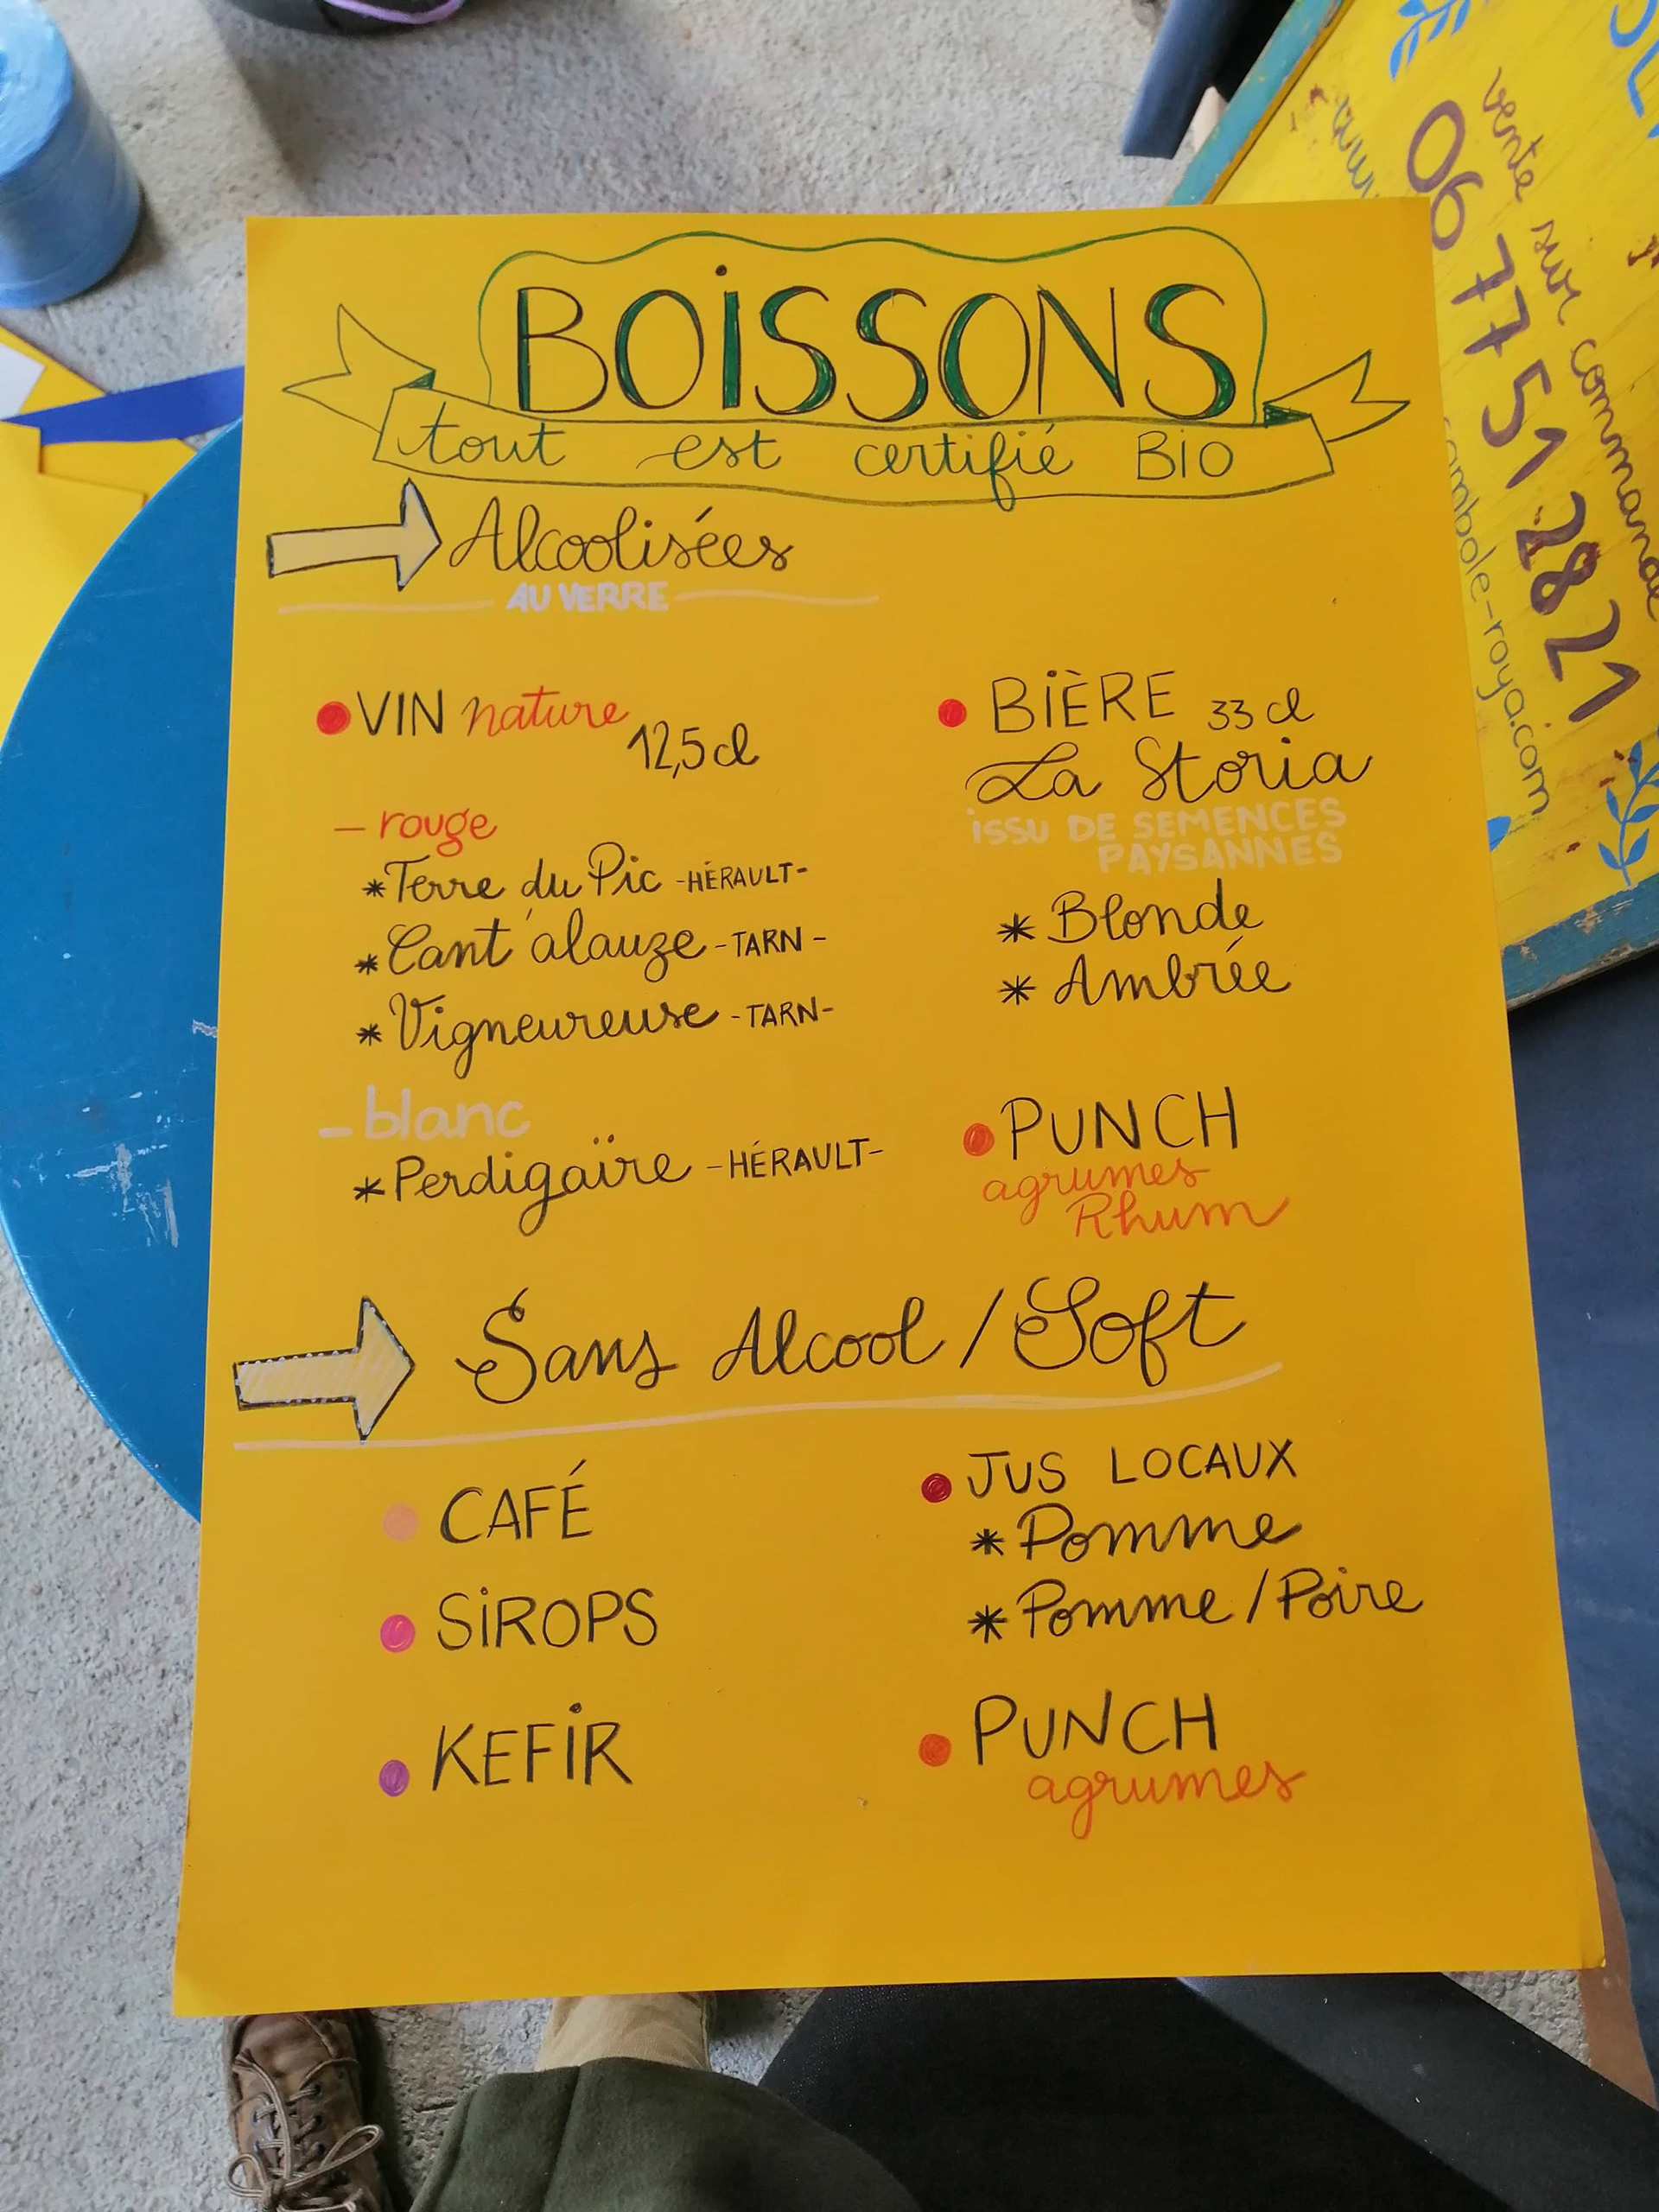 BOISSONS
tout est certifié BIO
Alcoolisées
AU VERRE
VIN nature
12,5 cl
- rouge
* Terre du Pic - HÉRAULT -
* Cant'alauze - TARN -
* Vigneureuse - TARN -
- blanc
* Perdigaïre - HÉRAULT -
BIÈRE 33 cl
La Storia
ISSU DE SEMENCES
PAYSANNES
* Blonde
* Ambrée
PUNCH
agrumes
Rhum
Sans Alcool / Soft
CAFÉ
SIROPS
KEFIR
JUS LOCAUX
* Pomme
* Pomme / Poire
PUNCH
agrumes
vente sur commande
06 77 51 28 21